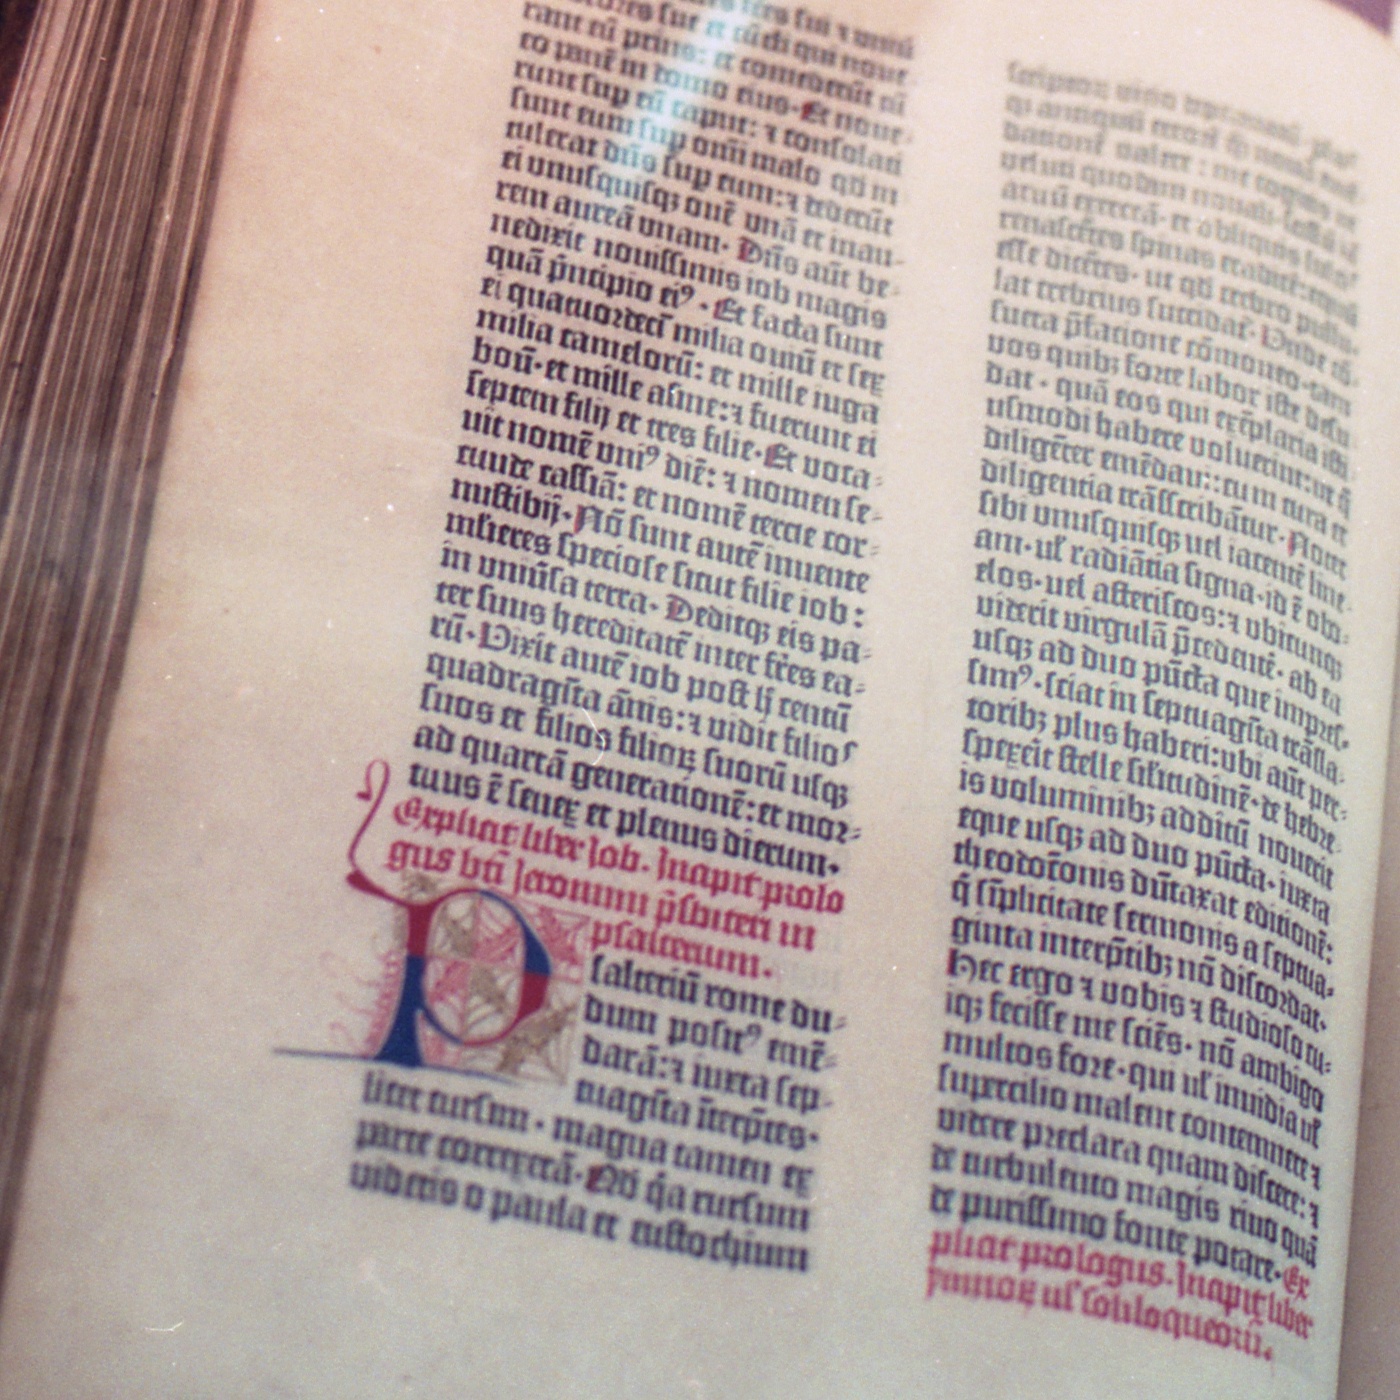 sui ⁊ omnes
rores sue et cūcti qui noue
rant eū prius: et comederūt cū
eo panē in domo eius. Et moue
runt sup eū caput: ⁊ consolati
sunt eum sup omī malo qd in
tulerat dūs sup eum: ⁊ dederūt
ei unusquisqꝫ ouē unā et inau-
rem aureā unam. Dūs aūt be-
nedixit nouissimis iob magis
quā pͥncipio eiꝰ. Et facta sunt
ei quatuordecī milia ouiū et sex
milia camelorū: et mille iuga
boū. et mille asine: ⁊ fuerunt ei
septem filij et tres filie. Et voca-
uit nomē uniꝰ diē: ⁊ nomen se-
cunde cassiā: et nomē tercie cor-
nustibij. Nō sunt autē inuente
mlieres speciose sicut filie iob:
in uniūsa terra. Deditqꝫ eis pa-
ter suus hereditatē inter frēs ea-
rū. Vixit autē iob post hͨ centū
quadragīta ānis: ⁊ vidit filios
suos et filios filioꝝ suorū usqꝫ
ad quartā generationē: et mor-
tuus ē senex et plenus dierum.
Explicit liber Job. Incipit prolo
gus bti Jeronimi pͬsbiteri in
psalterium.
Psalteriū rome du-
dum positꝰ emē-
darā: ⁊ iuxta sep-
tuagīta īterp̄tes.
licet cursim. magna tamen ex
parte correxerā. Qd qͥa rursum
videtis o paula et eustochium
scriptoꝝ uitio
qꝫ antiquū errorē
dationē valere: me cogitis ut
veluti quodam nouali
aruū exercerā. et obliquis sulcis
renascētes spinas eradicē:
esse dicētes. ut qd crebro
lat crebrius succidat̄. Unde
sueta p̄facione cōmoneo. tam
vos quibꝫ forte labor iste desu
dat. quā eos qui exēplaria isti
usmodi habere voluerint: ut q̄
diligēter emēdaui: cum cura et
diligentia trāsscribātur. Notet
sibi unusquisqꝫ vel iacentē line-
am. ul̄ radiātia signa. id ē obo-
elos. vel asteriscos: ⁊ ubicunqꝫ
viderit virgulā p̄cedentē. ab ea
usqꝫ ad duo pūcta que impres-
simꝰ. sciat in septuagīta trāsla-
toribꝫ plus haberi: ubi aūt per-
spexeit stelle sil̄itudinē. de hebre-
is voluminibꝫ additū nouerit
eque usqꝫ ad duo pūcta. iuxta
theodotionis dūtaxat editionē:
q̄ sīplicitate sermonis a septua-
ginta interp̄tibꝫ nō discordat.
Hec ergo ⁊ vobis ⁊ studioso cu-
iqꝫ fecisse me sciēs. nō ambigo
multos fore. qui ul̄ inuidia ul̄
supercilio malent contemnere ⁊
videre preclara quam discere: ⁊
de turbulento magis riuo quā
de purissimo fonte potare. Ex
plicit prologus. Incipit liber
ymnoꝝ ul̄ soliloquiorū.